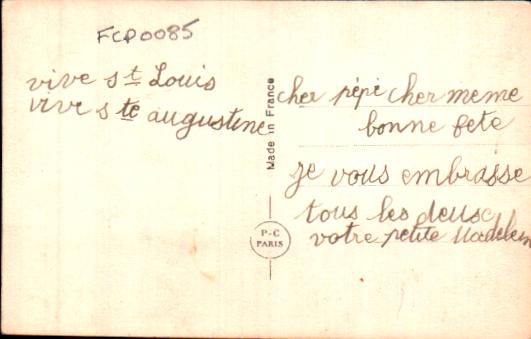 FCP0085
vive st Louis
vive ste augustine
Made in France
P-C
PARIS
cher pépé cher meme
bonne fete
je vous embrasse
tous les deusc
votre petite Madelein